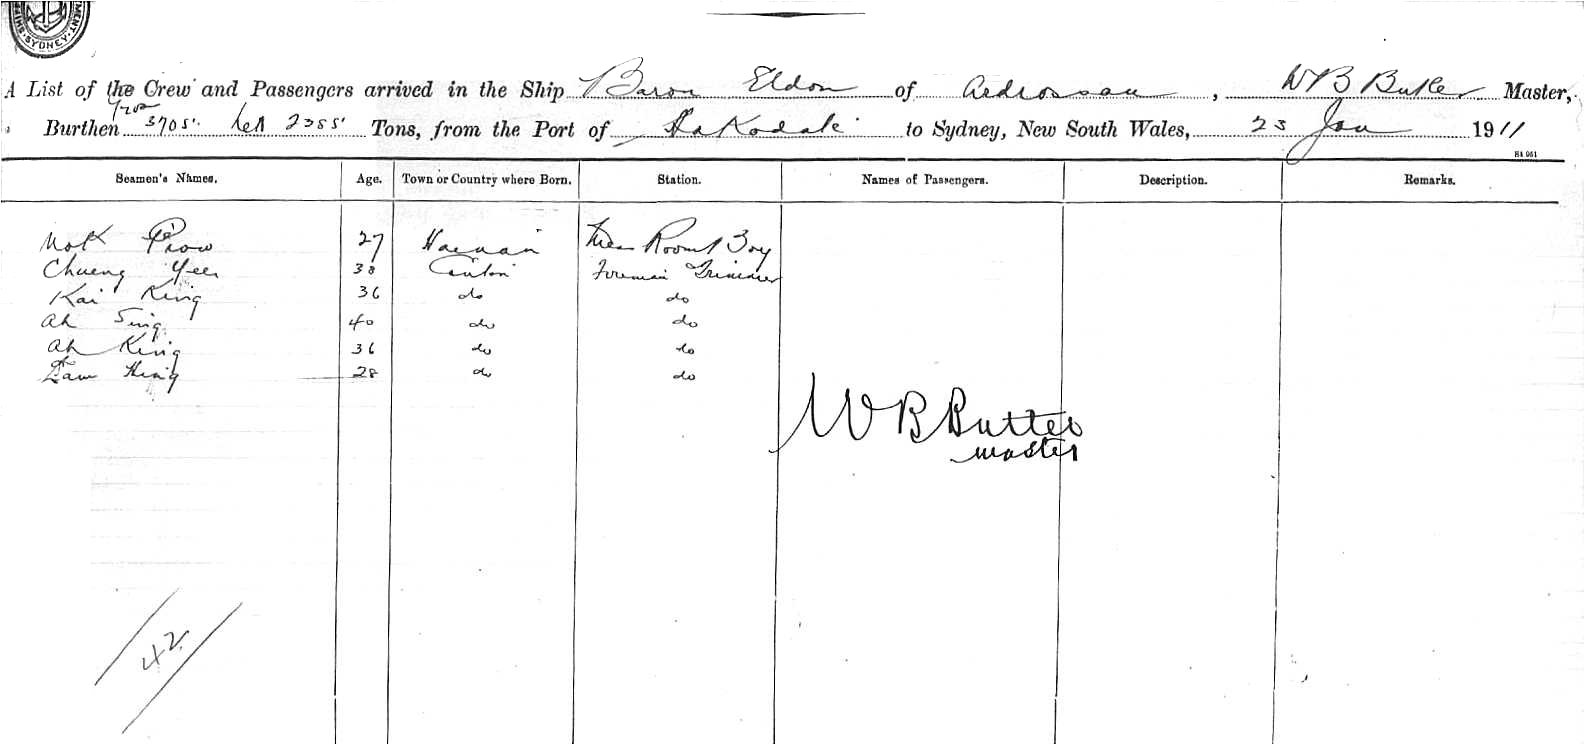 SYDNEY
A List of the Crew and Passengers arrived in the Ship Baron Eldon of Ardrossan, W B Butler Master,
Burthen Gros 3705 Nett 2355 Tons, from the Port of Hakodate to Sydney, New South Wales, 23 Jan 1911
Seamen's Names. Age. Town or Country where Born. Station. Names of Passengers. Description. Remarks.
Mok 27 Hainan Mess Room Boy
Chueng Yee 38 Canton Foreman Trimmer
Kai King 36 do do
Ah Sing 40 do do
Ah King 36 do do
Lam Hing 28 do do
W B Butler
master
42